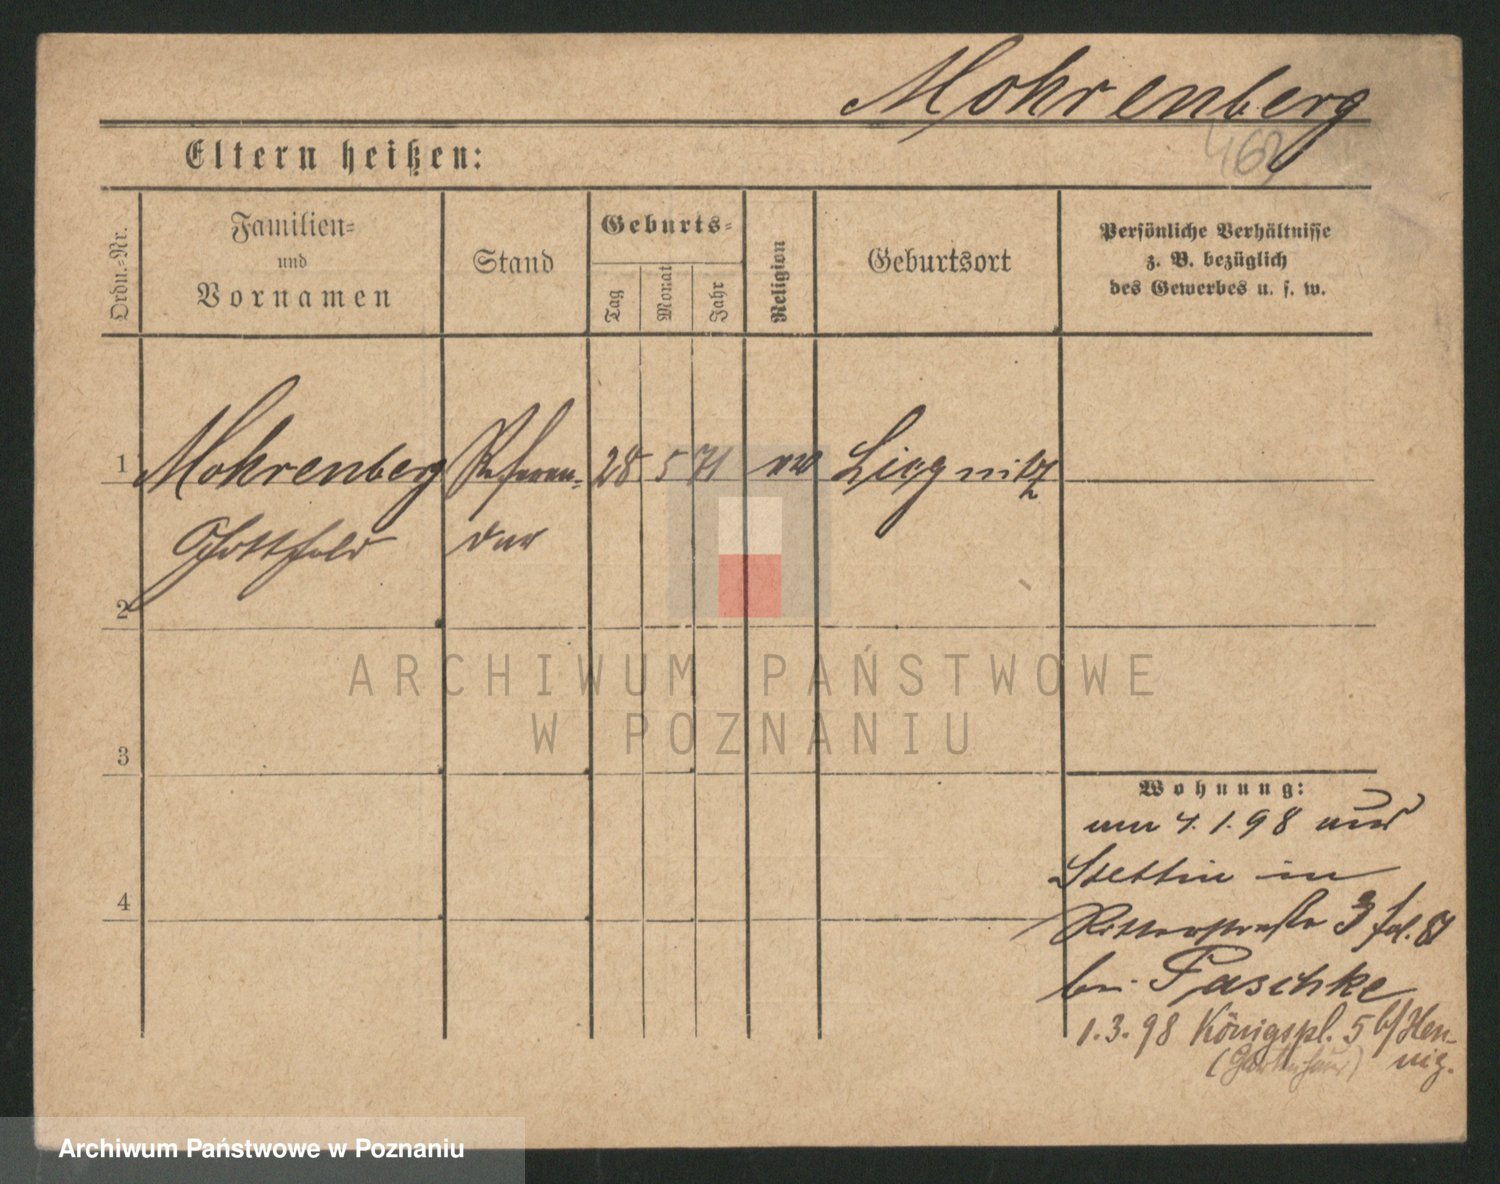 Mohrenberg
462
Eltern heißen:
Ordn.-Nr.
Familien-
und
Vornamen
Stand
Geburts-
Tag
Monat
Jahr
Religion
Geburtsort
Persönliche Verhältnisse
z. B. bezüglich
des Gewerbes u. s. w.
1 Mohrenberg Referen- 28 5 71 ev Liegnitz
Gottfold dar
2
ARCHIWUM PAŃSTWOWE
W POZNANIU
3
Wohnung:
am 4.1.98 aus
Stettin in
4
Ritterstraße 3
bei Paschke
1.3.98 Königspl. 5 b/Hen-
(Gartenhaus) nig.
Archiwum Państwowe w Poznaniu